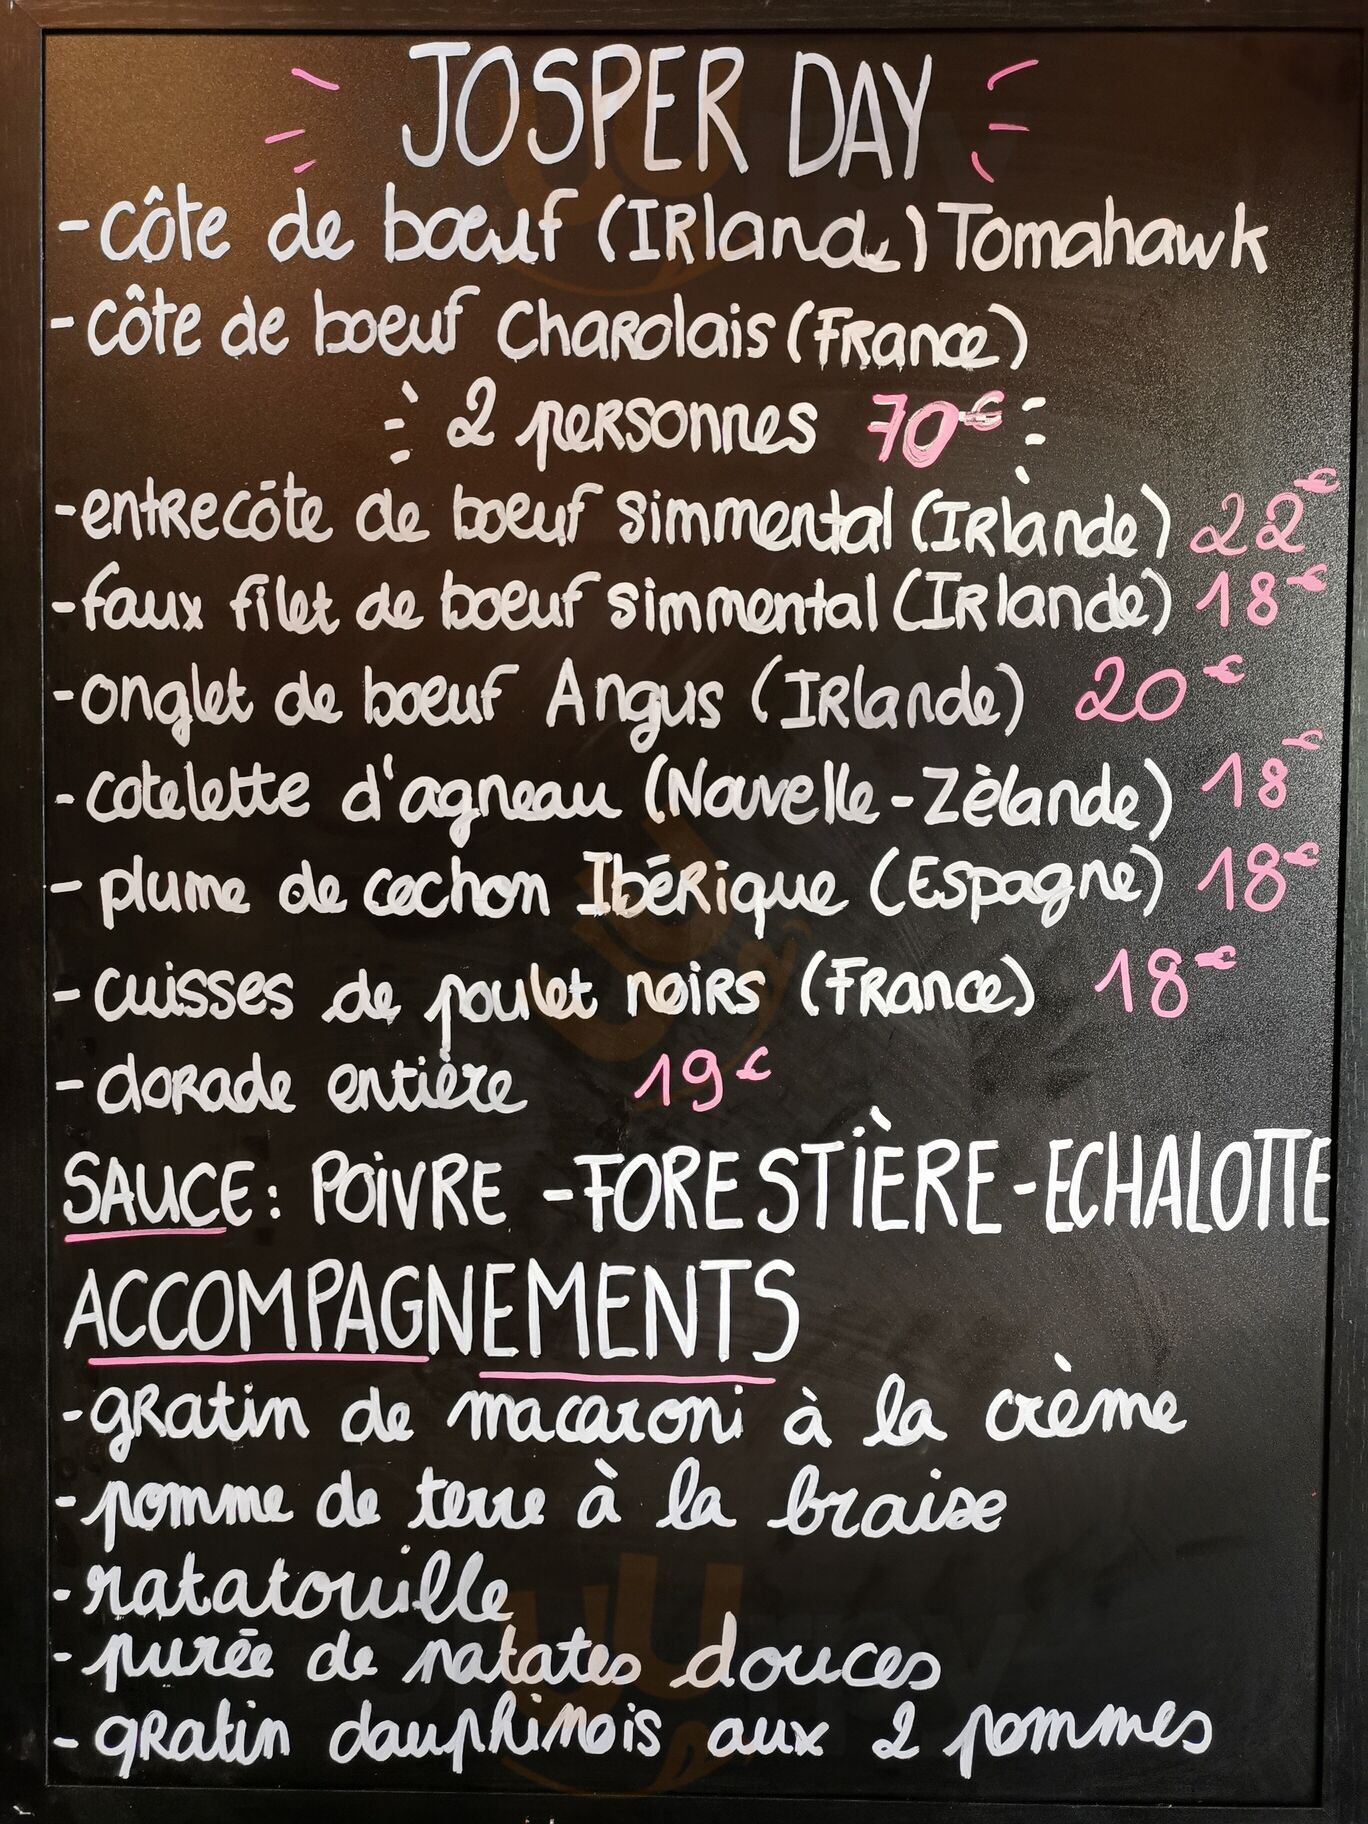 JOSPER DAY
- côte de bœuf (IRlande) Tomahawk
- côte de boeuf ChaRolais (FRance)
2 peRsonnes 70€
- entRecôte de boeuf simmental (IRlande) 22€
- faux filet de boeuf simmental (IRlande) 18€
- onglet de boeuf Angus (IRlande) 20€
- cotelette d'agneau (Nouvelle-Zélande) 18€
- plume de cochon IbéRique (Espagne) 18€
- cuisses de poulet noiRs (FRance) 18€
- doRade entière 19€
SAUCE: POiVRE - FORESTIÈRE - ECHALOTTE
ACCOMPAGNEMENTS
- gRatin de macaroni à la crème
- pomme de terre à la braise
- ratatouille
- purée de patates douces
- gRatin dauphinois aux 2 pommes